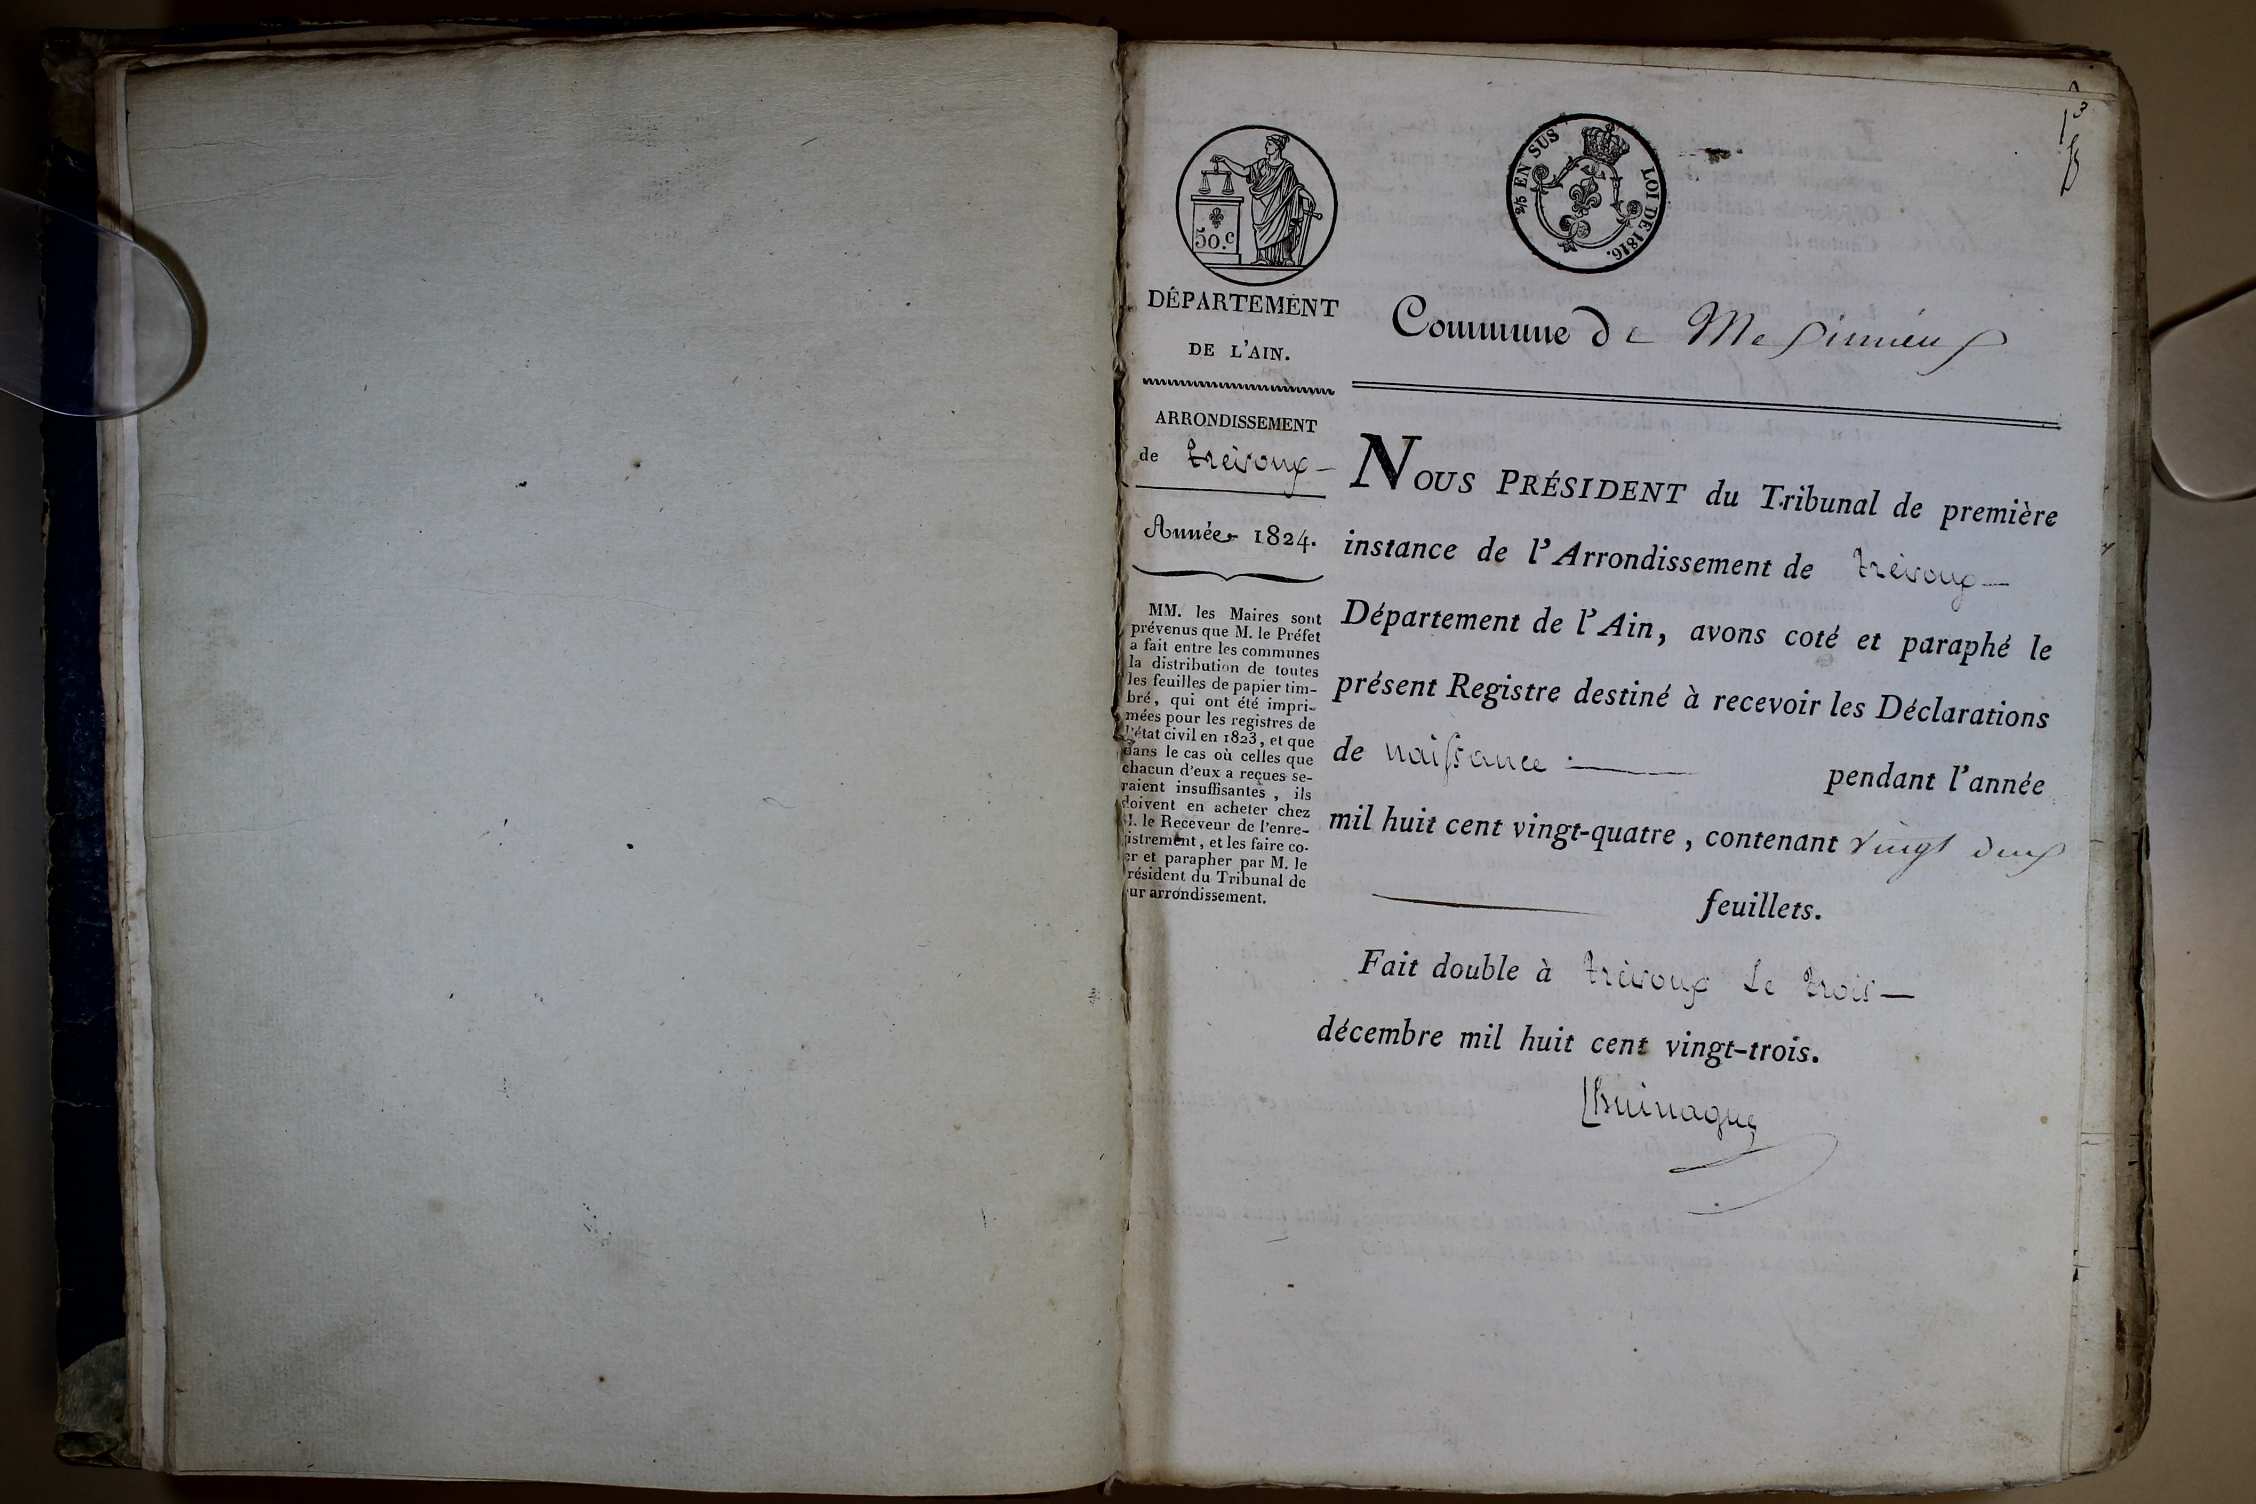 50.c
2/5 EN SUS
LOI DE 1816.
DÉPARTEMENT
DE L'AIN.
ARRONDISSEMENT
de trévoux
Année 1824.
MM. les Maires sont
prévenus que M. le Préfet
a fait entre les communes
la distribution de toutes
les feuilles de papier tim-
bré, qui ont été impri-
mées pour les registres de
l'état civil en 1823, et que
dans le cas où celles que
chacun d'eux a reçues se-
raient insuffisantes, ils
doivent en acheter chez
M. le Receveur de l'enre-
istrement, et les faire co-
er et parapher par M. le
résident du Tribunal de
ur arrondissement.
Commune de Messimieux
NOUS PRÉSIDENT du Tribunal de première
instance de l'Arrondissement de trévoux
Département de l'Ain, avons coté et paraphé le
présent Registre destiné à recevoir les Déclarations
de naissance pendant l'année
mil huit cent vingt-quatre, contenant vingt deux
feuillets.
Fait double à trévoux le trois
décembre mil huit cent vingt-trois.